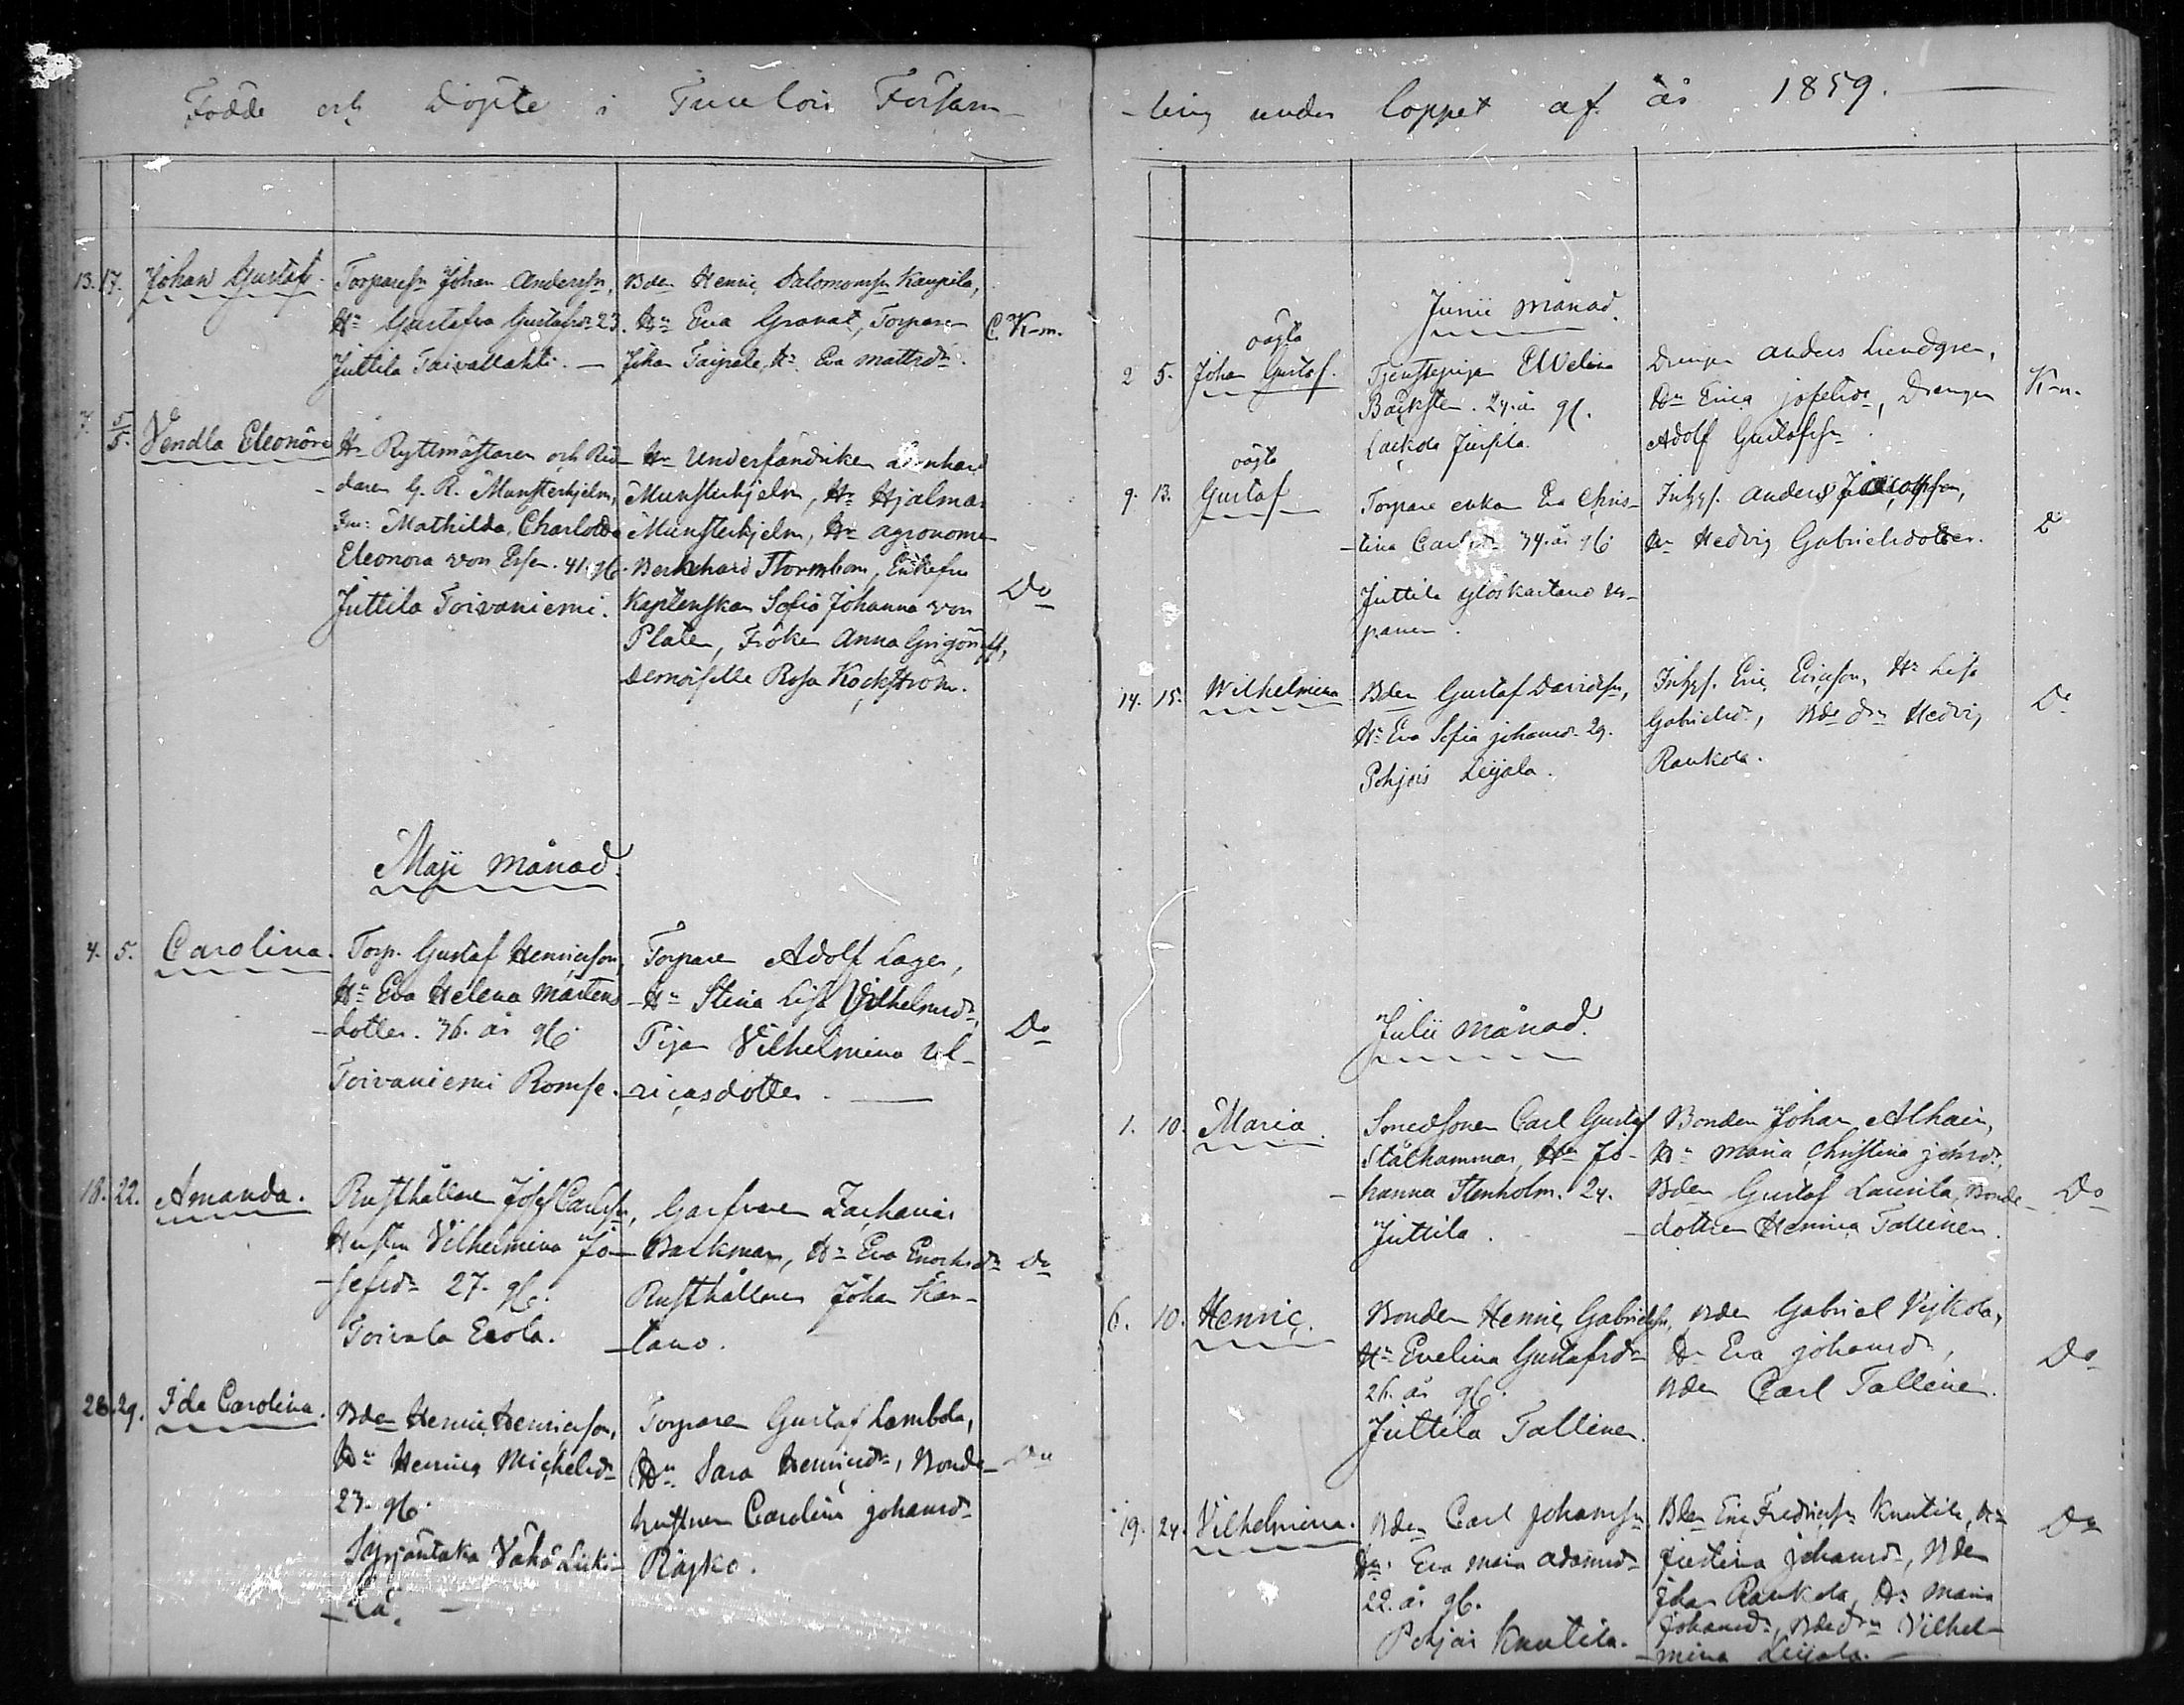 Födde och Döpte i Tuulois Försam-
13. 17. Johan Gustaf.
Torparesn Johan Andersn,
Hu Gustafva Gustafsdr 23.
Juttila Taivallahti. —
Bden Henric Salomonsn Kaupila,
Hu Eva Granat, Torparen
Johan Taipale, Hu Eva Mattsdr.
C. K-m.
7. 5/5. Vendla Eleonora
Hr Ryttmästaren och Rid-
daren G. R. Munsterhjelm,
Fru: Mathilda, Charlotta
Eleonora von Essen. 41. g6.
Juttila Toivaniemi.
Hr Underfändriken
Munsterhjelm, Hr Hjalmar
Munsterhjelm, Hr Agronomen
Bernhard Thormbom, Enkefru
Kaptenskan Sofia Johanna von
Platen, Fröken Anna
Demoiselle Rosa Kockström.
Do
Maji Månad.
4. 5. Carolina.
Torp. Gustaf Henricson,
Hu Eva Helena Mårtens
-dotter. 36. år g6.
Toivaniemi Romse.
Torparen Adolf Lager,
Hu Stina Lisa Vilhelmsdr,
Pigan Vilhelmina Ul-
-ricasdotter. —
Do
18. 22. Amanda.
Rusthållaren Josef Carlsn,
Hustrun Vilhelmina Jo-
-sefsdr 27. g6.
Toivala Erola.
Garfvaren Zacharias
Backman, Hu Eva Enochsdr
Rusthållaren Johan Kar-
-tano.
Do
28. 29. Ida Carolina.
Bden Henric Henricson,
Hu Henrica Michelsdr
23. g6.
Syrjäntaka Vähä Lieki-
-lä. —
Torparen Gustaf Lambola,
Hu Sara Henricsdr, Bonde-
hustrun Carolina Johansdr
Räyko.
Do
-ling under loppet af år 1859. —
Junii månad.
2 5. oägta
Johan Gustaf.
Tjenstepigan Evelina
Bäcksten. 24. år g1.
Drengen Anders Lundgren,
Hu Erica Josefsdr, Drengen
Adolf Gustafssn.
K-m.
9. 13. oägta
Gustaf
Torpare enkan Eva Chris-
-tina Carlsdr 34. år g6
Juttila
Inhys. Anders Jacobsson,
Hu Hedvig Gabrielsdotter.
D
14. 15. Wilhelmina
Bden Gustaf Davidsn,
Hu Eva Sofia Johansdr 29.
Pohjois Leijala.
Inhys. Eric Ericson, Hu Lisa
Gabrielsdr, Bde drn Hedvig
Raukola.
Do
Julii månad.
1. 10. Maria.
Smedsonen Carl Gustaf
Stålhammar, Hu Jo-
-hanna Stenholm. 24.
Juttila.
Bonden Johan Alhain,
Hu Maria Christina Johsdr,
Bden Gustaf Laurila, Bonde-
-dottren Henrica Tallinen.
Do
6. 10. Henric.
Bonden Henric Gabrielsn,
Hu Evelina Gustafsdr
26. år g6.
Juttila Tallinen.
Bden Gabriel Vejkola,
Hu Eva Johansdr,
Bden Carl Tallinen.
Do
19. 24. Vilhelmina.
Bden Carl Johansn
Hu. Eva Maria Adamsdr
22. år g6.
Pohjois Knutila.
Bden Eric Fredricsn Knutila, Hu
Justina Johansdr, Bden
Johan Raukola, Hu Maria
Johansdr, Bdedrn Vilhel-
-mina Leijala. —
Do